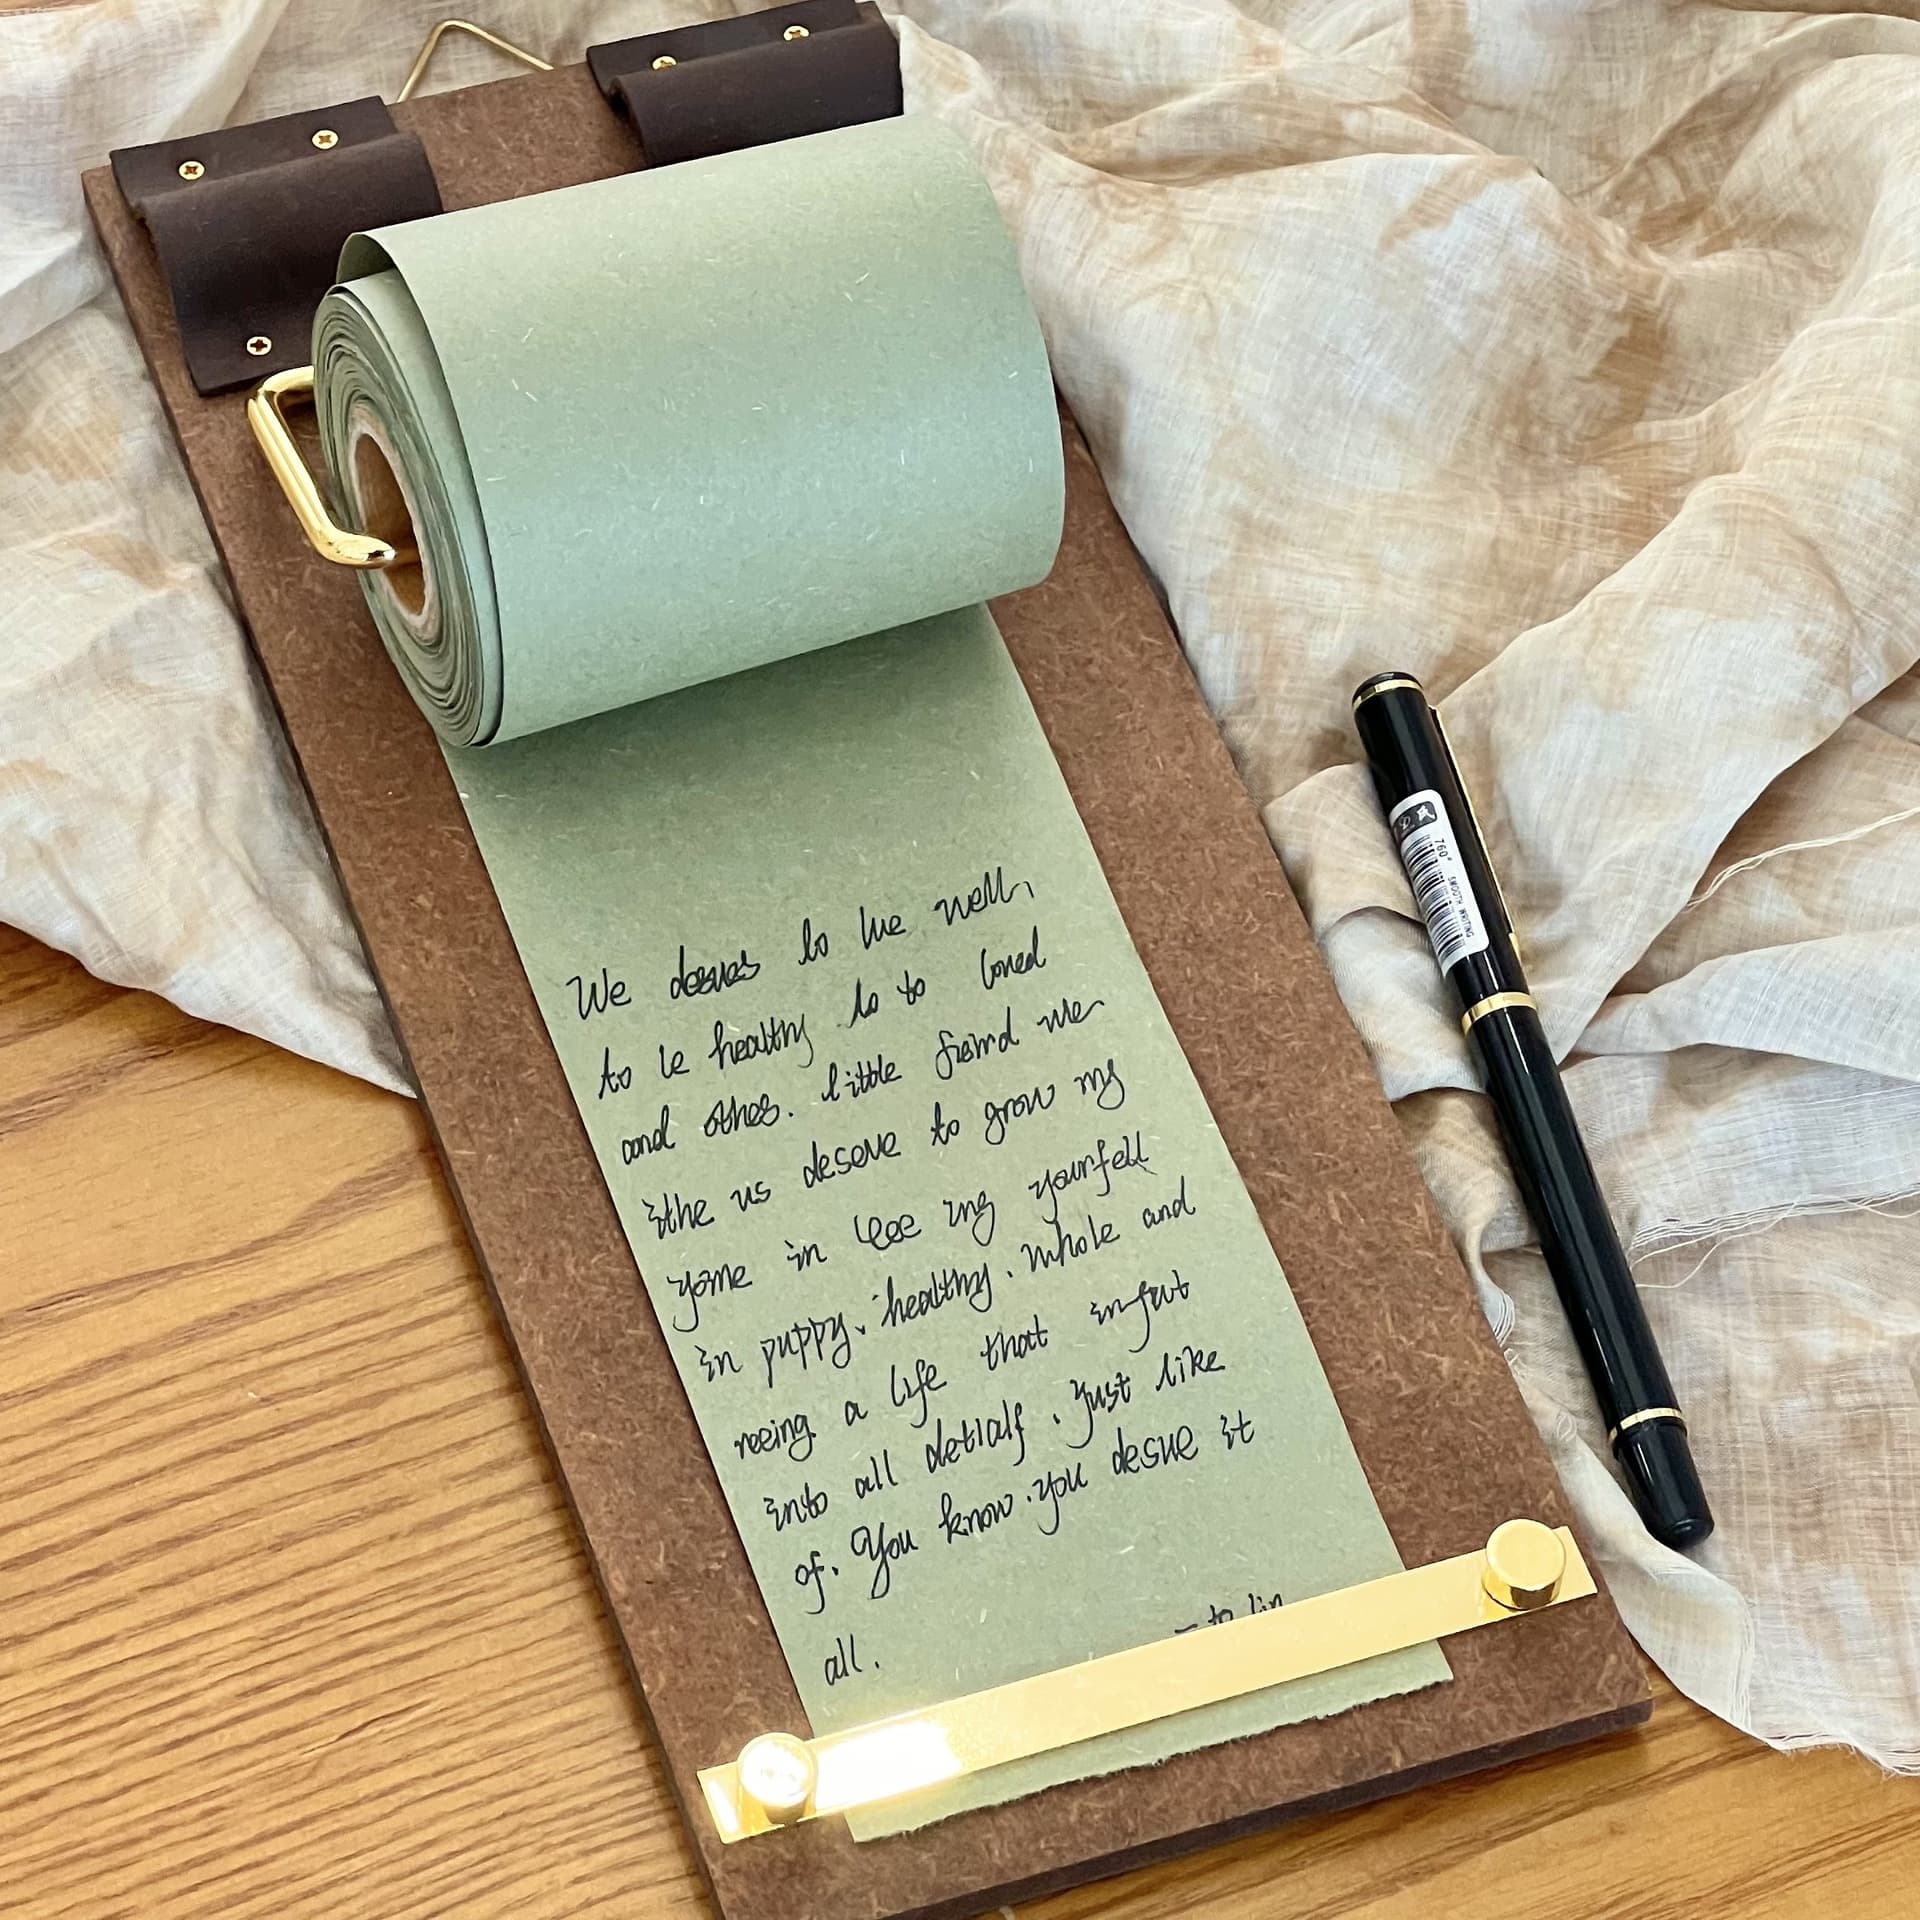 We deserves to live well,
to le healthy to to loved
and othes. little freind we
ithe us deseve to grow my
yome in ing yourfell
in puppy, healthy. whole and
reeing a life that infut
into all detialf. just like
of. You know. you desue it
all.
- to lin
760°
SMOOTH WRITING